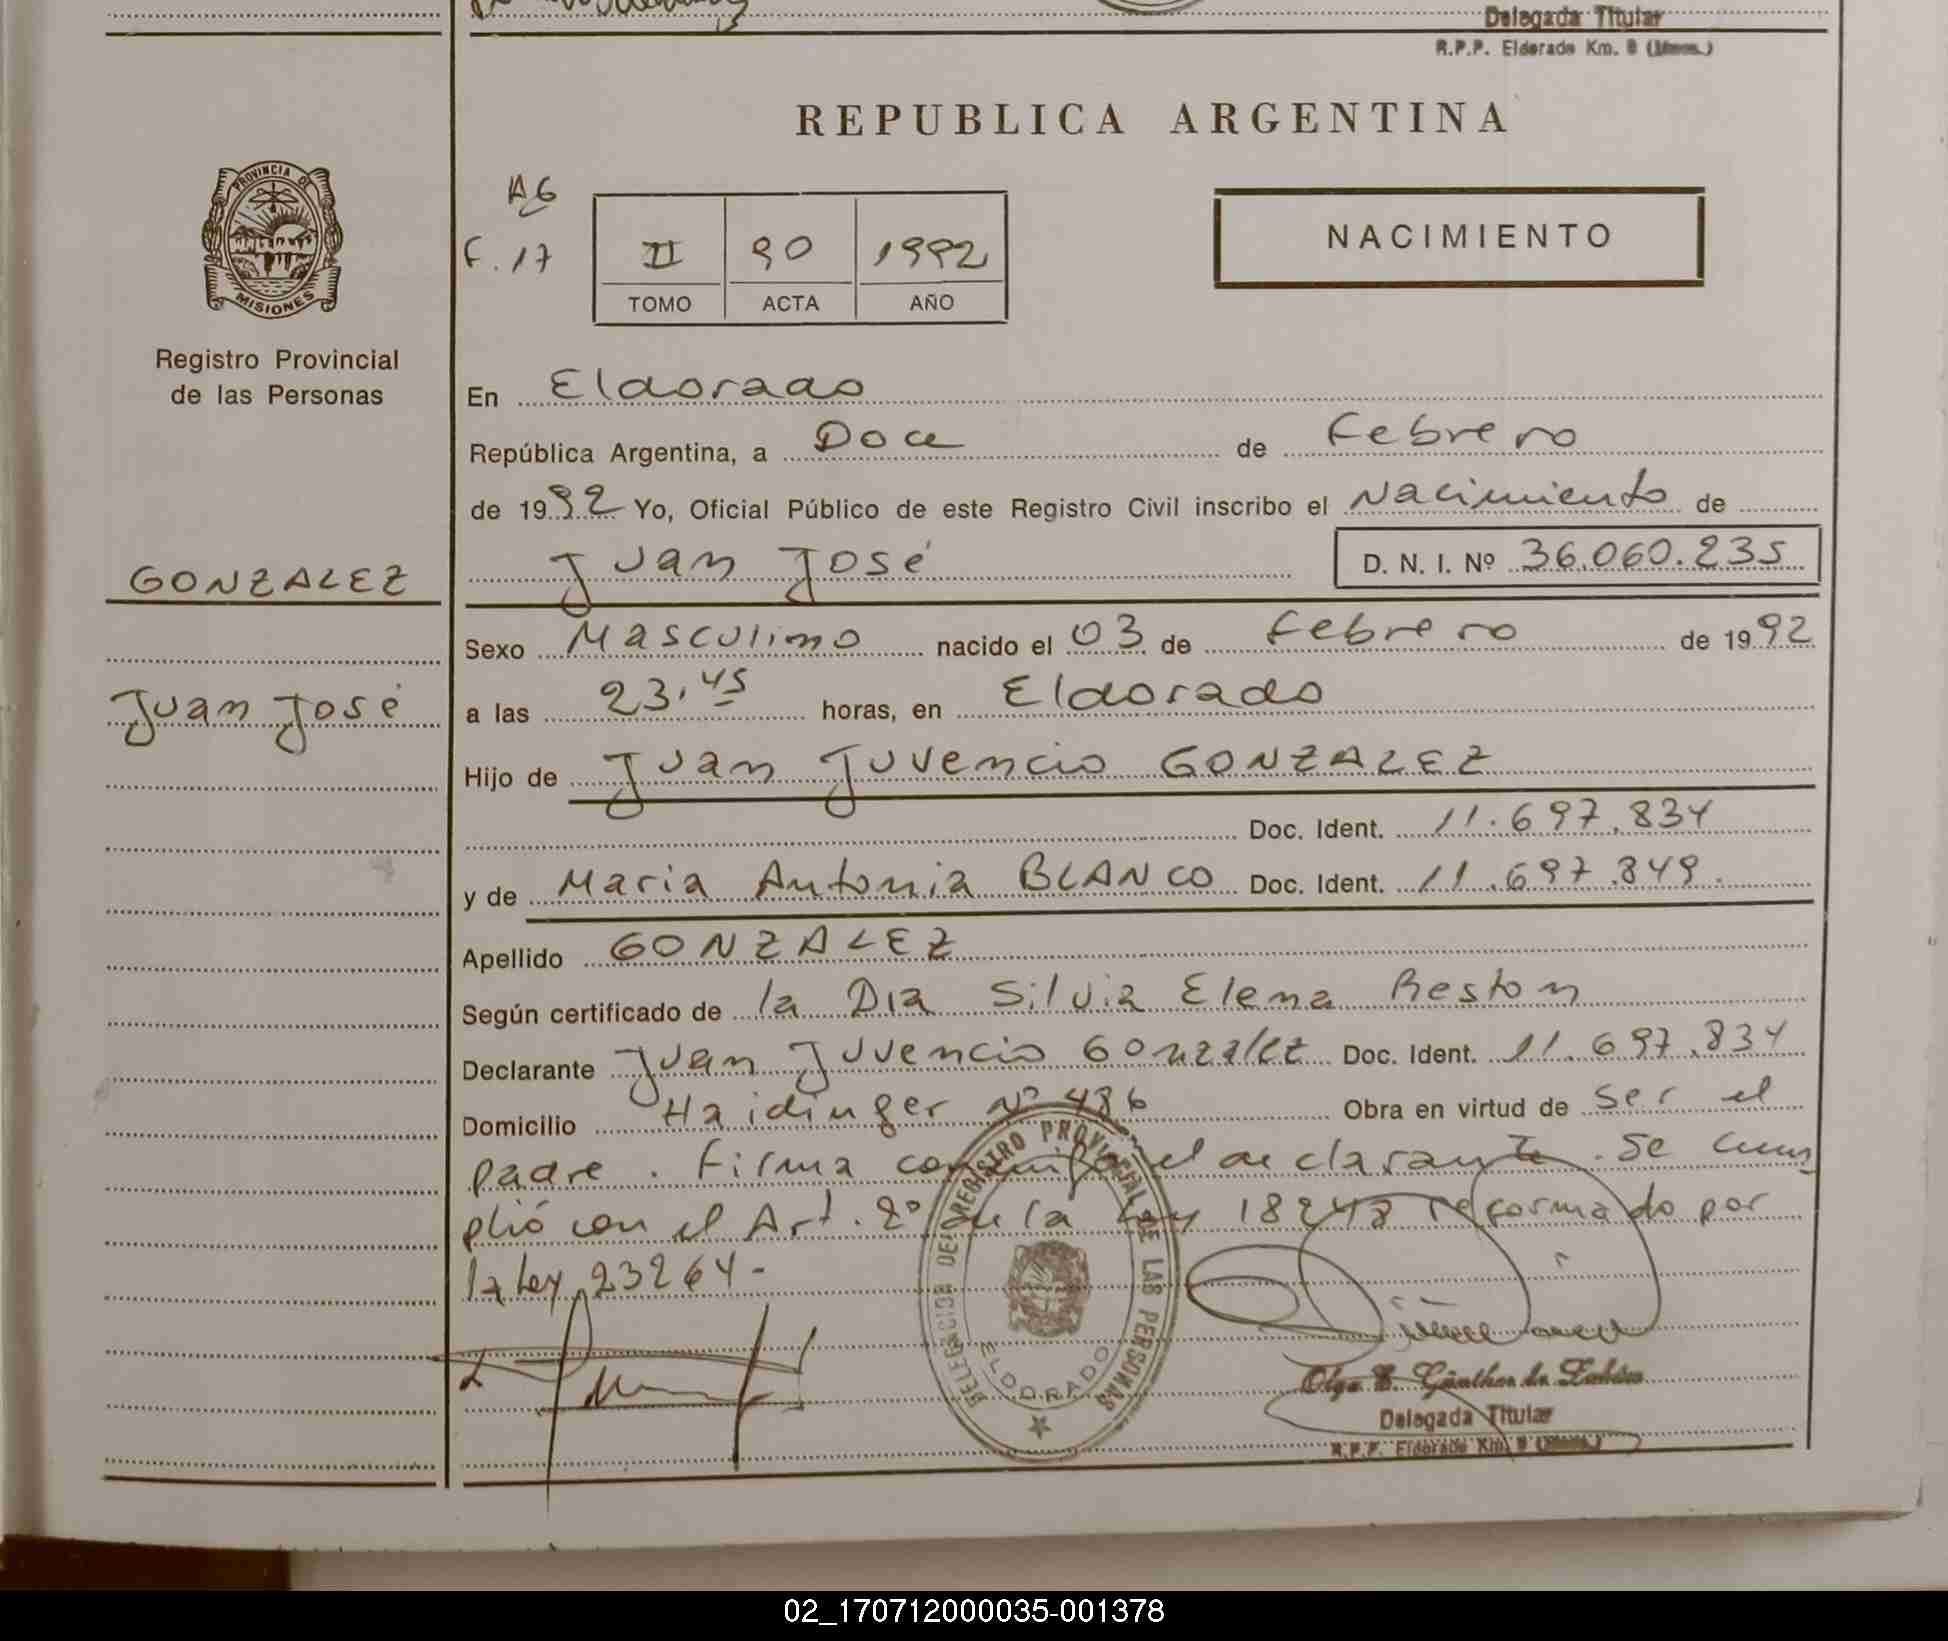 Delegada Titular
R.P.P. Eldorado Km. 9 (Mnes.)
REPUBLICA ARGENTINA
PROVINCIA DE
MISIONES
Registro Provincial
de las Personas
A6
F. 17
II 90 1992
TOMO ACTA AÑO
NACIMIENTO
En Eldorado
República Argentina, a Doce de Febrero
de 1992 Yo, Oficial Público de este Registro Civil inscribo el Nacimiento de
Juan José D. N. I. Nº 36.060.235
GONZALEZ
Juan José
Sexo Masculino nacido el 03 de Febrero de 1992
a las 23,45 horas, en Eldorado
Hijo de Juan Juvencio GONZALEZ
Doc. Ident. 11.697.834
y de Maria Antonia BLANCO Doc. Ident. 11.697.849.
Apellido GONZALEZ
Según certificado de la Dra Silvia Elena Reston
Declarante Juan Juvencio Gonzalez Doc. Ident. 11.697.834
Domicilio Haidinger Nº 486 Obra en virtud de ser el
padre. Firma conmigo el declarante. Se cum
plió con el Art. 2º de la Ley 18248 reformado por
la Ley 23264-
DELEGACION DEL REGISTRO PROVINCIAL DE LAS PERSONAS
ELDORADO
Olga E. Günther de
Delegada Titular
R.P.P. Eldorado Km. 9 (Mnes.)
02_170712000035-001378